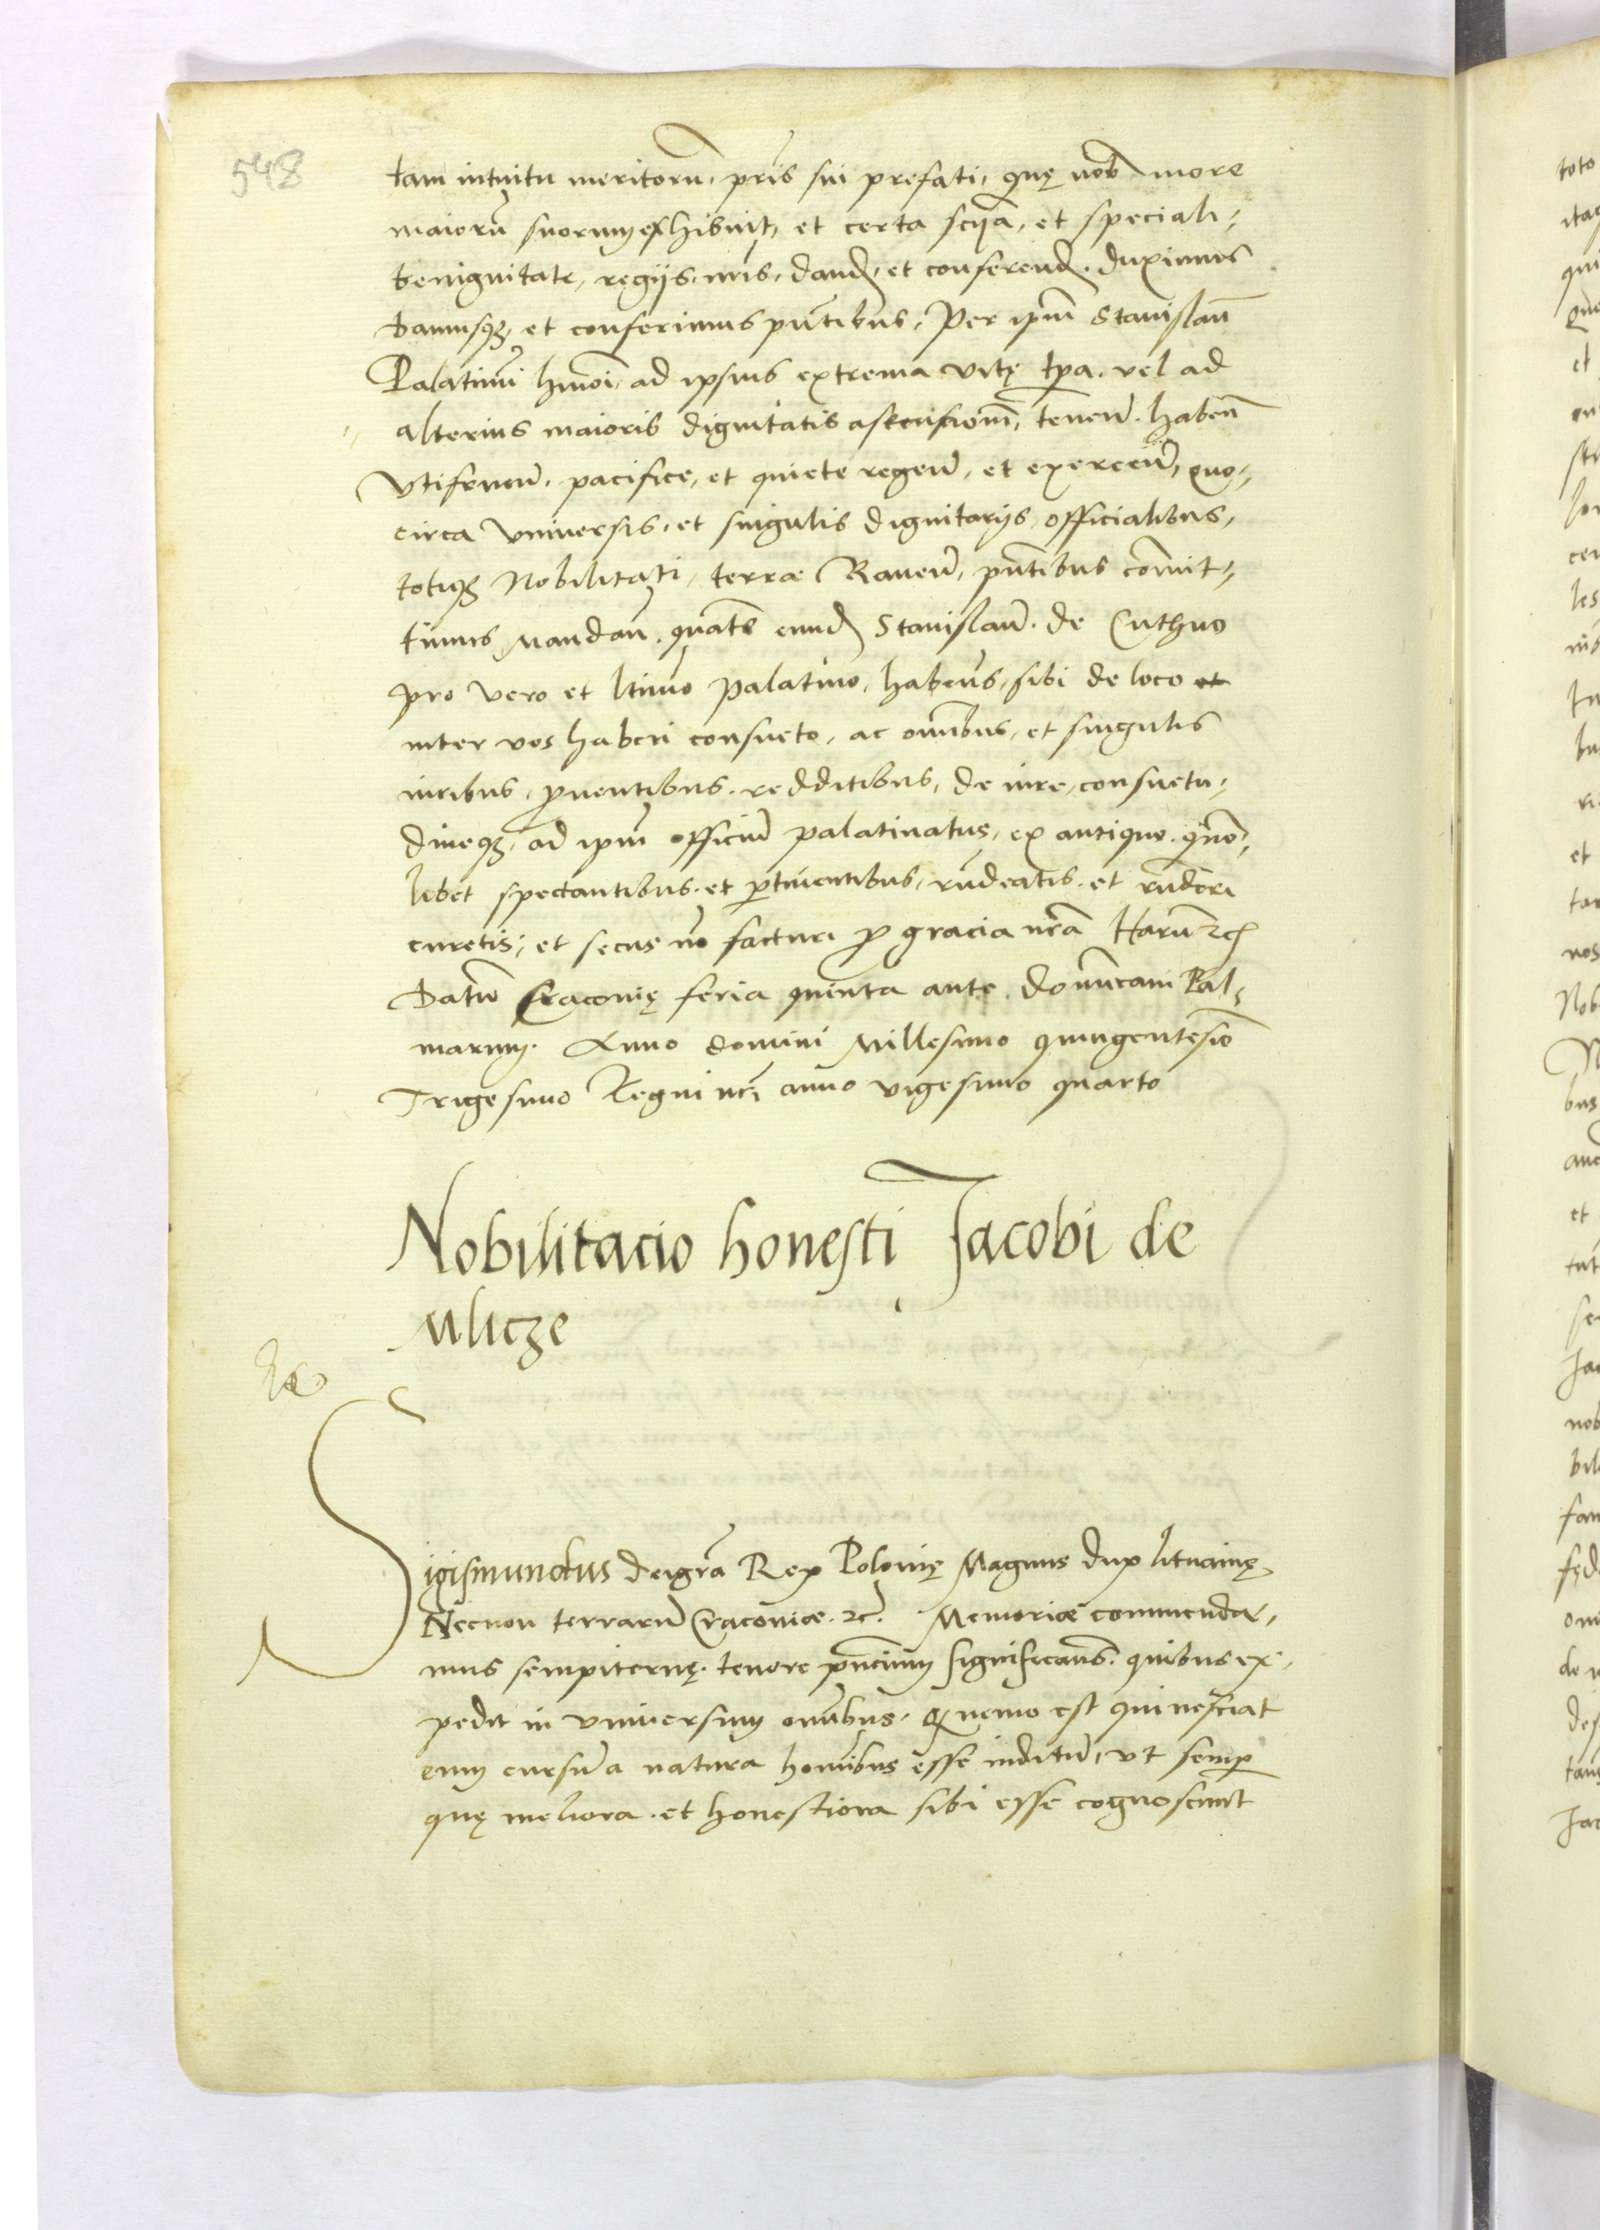 548
tam intuitu meritorũ, pr̃is sui prefati, quę nob̃ more
maiorũ suorum exhibuit, et certa sciã, et speciali
benignitate, regijs nr̃is, dand, et conferend, duximus
damusqȝ, et conferimus pñtibus, Per ipm̃ Stanislaũ
Palatinũ hmõi, ad ipsius extrema vitę tp̃a vel ad
alterius maioris dignitatis assecusionẽ, teneñ. habeñ
vtifrueñ, pacifice, et quiete regeñ, et exerceñ, quo,
circa vniuersis, et singulis dignitarijs officialibus,
totiqȝ Nobilitati, terræ Raueñ, pñtibus com̃it,
timus mandañ. quatẽ eund Stanislaũ. de Cuthno
pro vero et ltimo palatino, habeañs, sibi de loco et
inter vos haberi consueto, ac om̃ibus, et singulis
iuribus, ꝓuentibus. redditibus, de iure, consuetu,
dineqȝ, ad ipm̃ officiũ palatinatus, ex antiquo quõ,
libet spectantibus. et ꝑtinentibus, rñdeatis. et rñderi
curetis, et secus nõ facturi ꝓ gracia nr̃a Harũ ⁊c̃
Datũ Cracouię feria quinta ante dominicam Pal,
marum. Anno domini Millesimo quingentesio
Trigesimo Regni nr̃i anno vigesimo quarto
Nobilitacio honesti Jacobi de
Vlicze
Sigismundus dei grã Rex Polonię Magnus dux lituanię
Necnon terrarũ Cracouiæ. ⁊c̃. Memoriæ commenda,
mus sempiternę. tenore pñcium significañs. quibus ex,
pedit in vniuersum om̃ibus. qȝ nemo est qui nesciat
eum cursũ a natura hom̃ibus esse inditũ, vt semꝑ
quę meliora. et honestiora sibi esse cognoscunt